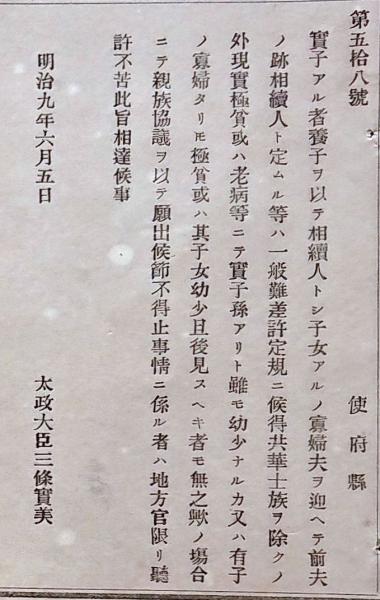 第五拾八號
使府縣
實子アル者養子ヲ以テ相續人トシ子女アルノ寡婦夫ヲ迎ヘテ前夫
ノ跡相續人ト定ムル等ハ一般難差許定規ニ候得共華士族ヲ除クノ
外現實極貧或ハ老病等ニテ實子孫アリト雖モ幼少ナルカ又ハ有子
ノ寡婦タリ𪜈極貧或ハ其子女幼少且後見スヘキ者モ無之歟ノ塲合
ニテ親族協議ヲ以テ願出候節不得止事情ニ係ル者ハ地方官限リ聽
許不苦此旨相達候事
明治九年六月五日
太政大臣三條實美